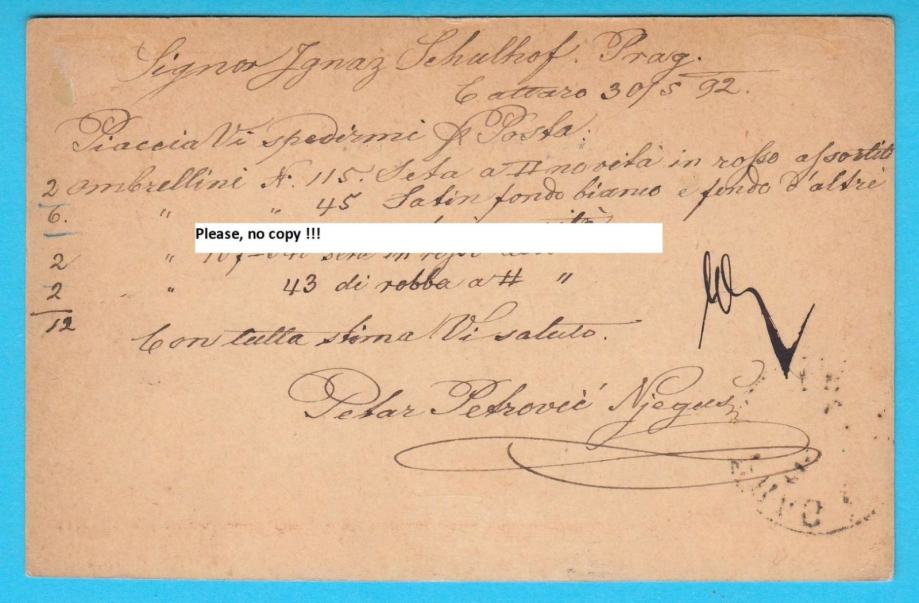 Signor Ignaz Schulhof. Prag.
Cattaro 30/5 92.
Piaccia Vi spedirmi p Posta:
2 ombrellini N. 115. Seta a # novità in rosso assortiti
6. " " 45 Satin fondo bianco e fondo d'altri
Please, no copy !!!
2 " seta in rosso
2 " " 43 di robba a # "
12
Con tutta stima Vi saluto.
Petar Petrović Njegus